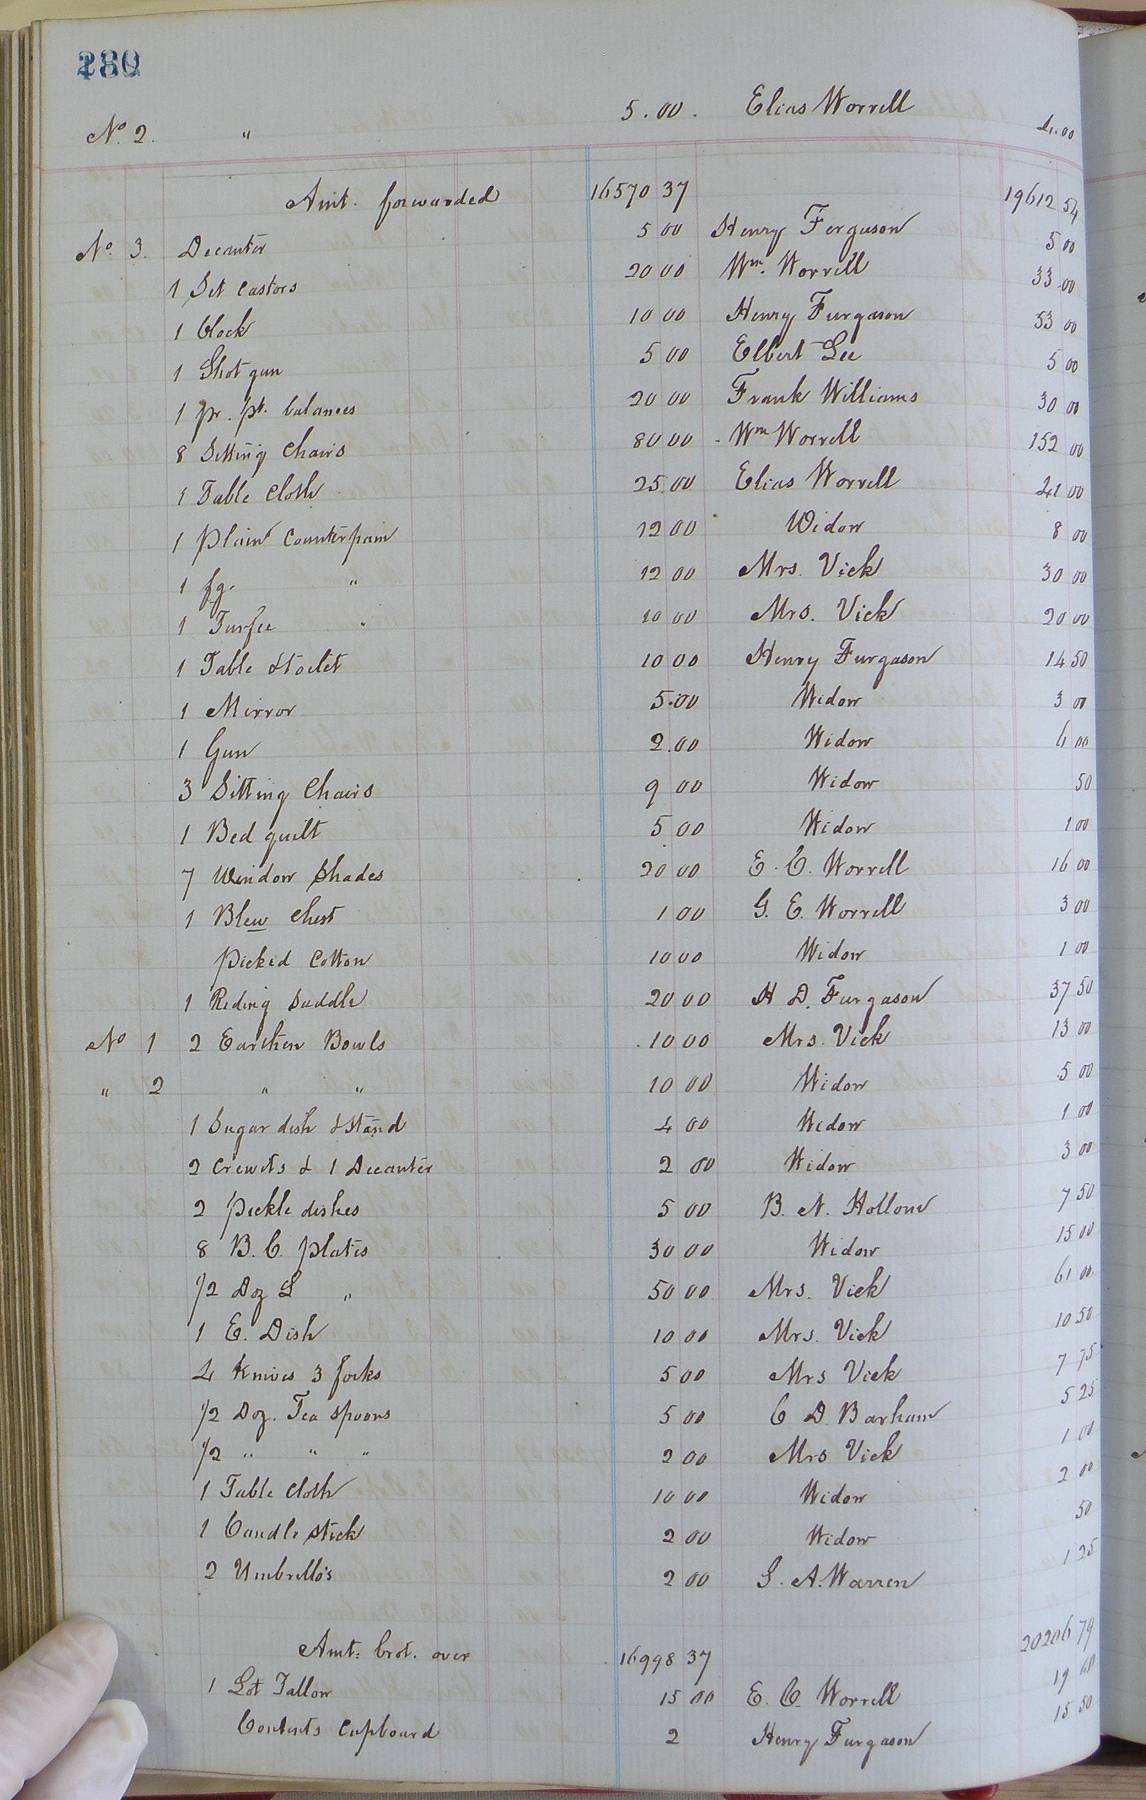 280
No. 2. " 5.00. Elias Worrell 4.00
Amt. forwarded 16570 37 19612 54
No. 3. Decanter 5 00 Henry Ferguson 5 00
1 Set Castors 20 00 Wm. Worrell 33.00
1 Clock 10 00 Henry Furgason 53 00
1 Shot gun 5 00 Elbert Lee 5 00
1 pr. pt. balances 20 00 Frank Williams 30 00
8 Sitting Chairs 80 00 Wm Worrell 152 00
1 Table Cloth 25.00 Elias Worrell 41 00
1 Plain Counterpain 12 00 Widow 8 00
1 fg. " 12 00 Mrs. Vick 30 00
1 Turfee " 10 00 Mrs. Vick 20 00
1 Table & toilet 10 00 Henry Furgason 14 50
1 Mirror 5.00 Widow 3 00
1 Gun 2.00 Widow 6 00
3 Sitting Chairs 9 00 Widow 50
1 Bed quilt 5 00 Widow 1 00
7 Window Shades 20 00 E. C. Worrell 16 00
1 Blew Chest 1 00 G. E. Worrell 3 00
Picked Cotton 10 00 Widow 1 00
1 Riding Saddle 20 00 H D. Furgason 37 50
No 1 2 Earthen Bowls 10 00 Mrs. Vick 13 00
" 2 " " 10 00 Widow 5 00
1 Sugar dish & Stand 4 00 Widow 1 00
2 Crewits & 1 Decanter 2 00 Widow 3 00
2 Pickle dishes 5 00 B. N. Hollow 7 50
8 B. C. Plates 30 00 Widow 15 00
1/2 Doz L " 50 00 Mrs. Vick 61 00
1 E. Dish 10 00 Mrs. Vick 10 50
4 Knives 3 forks 5 00 Mrs Vick 7 75
1/2 Doz. Tea spoons 5 00 C D. Barham 5 25
1/2 " " " 2 00 Mrs Vick 1 00
1 Table Cloth 10 00 Widow 2 00
1 Candle stick 2 00 Widow 50
2 Umbrello's 2 00 S. A. Warren 1 25
Amt: brot. over 16998 37 20206 79
1 Lot Tallow 15 00 E. C. Worrell 19
Contents Cupboard 2 Henry Furgason 15 50